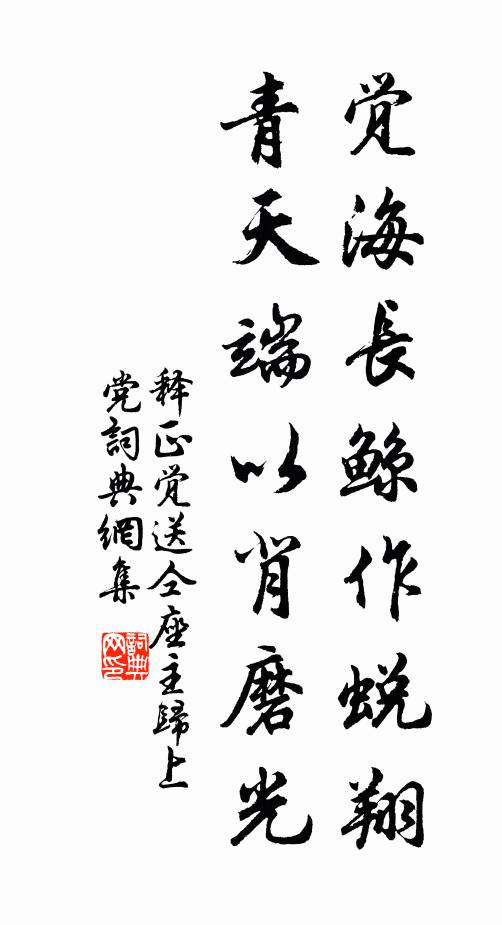 觉海長鲸作蜕翔
青天端以背磨光
释正觉送仝座主歸上
党詞典網集
詞典網印